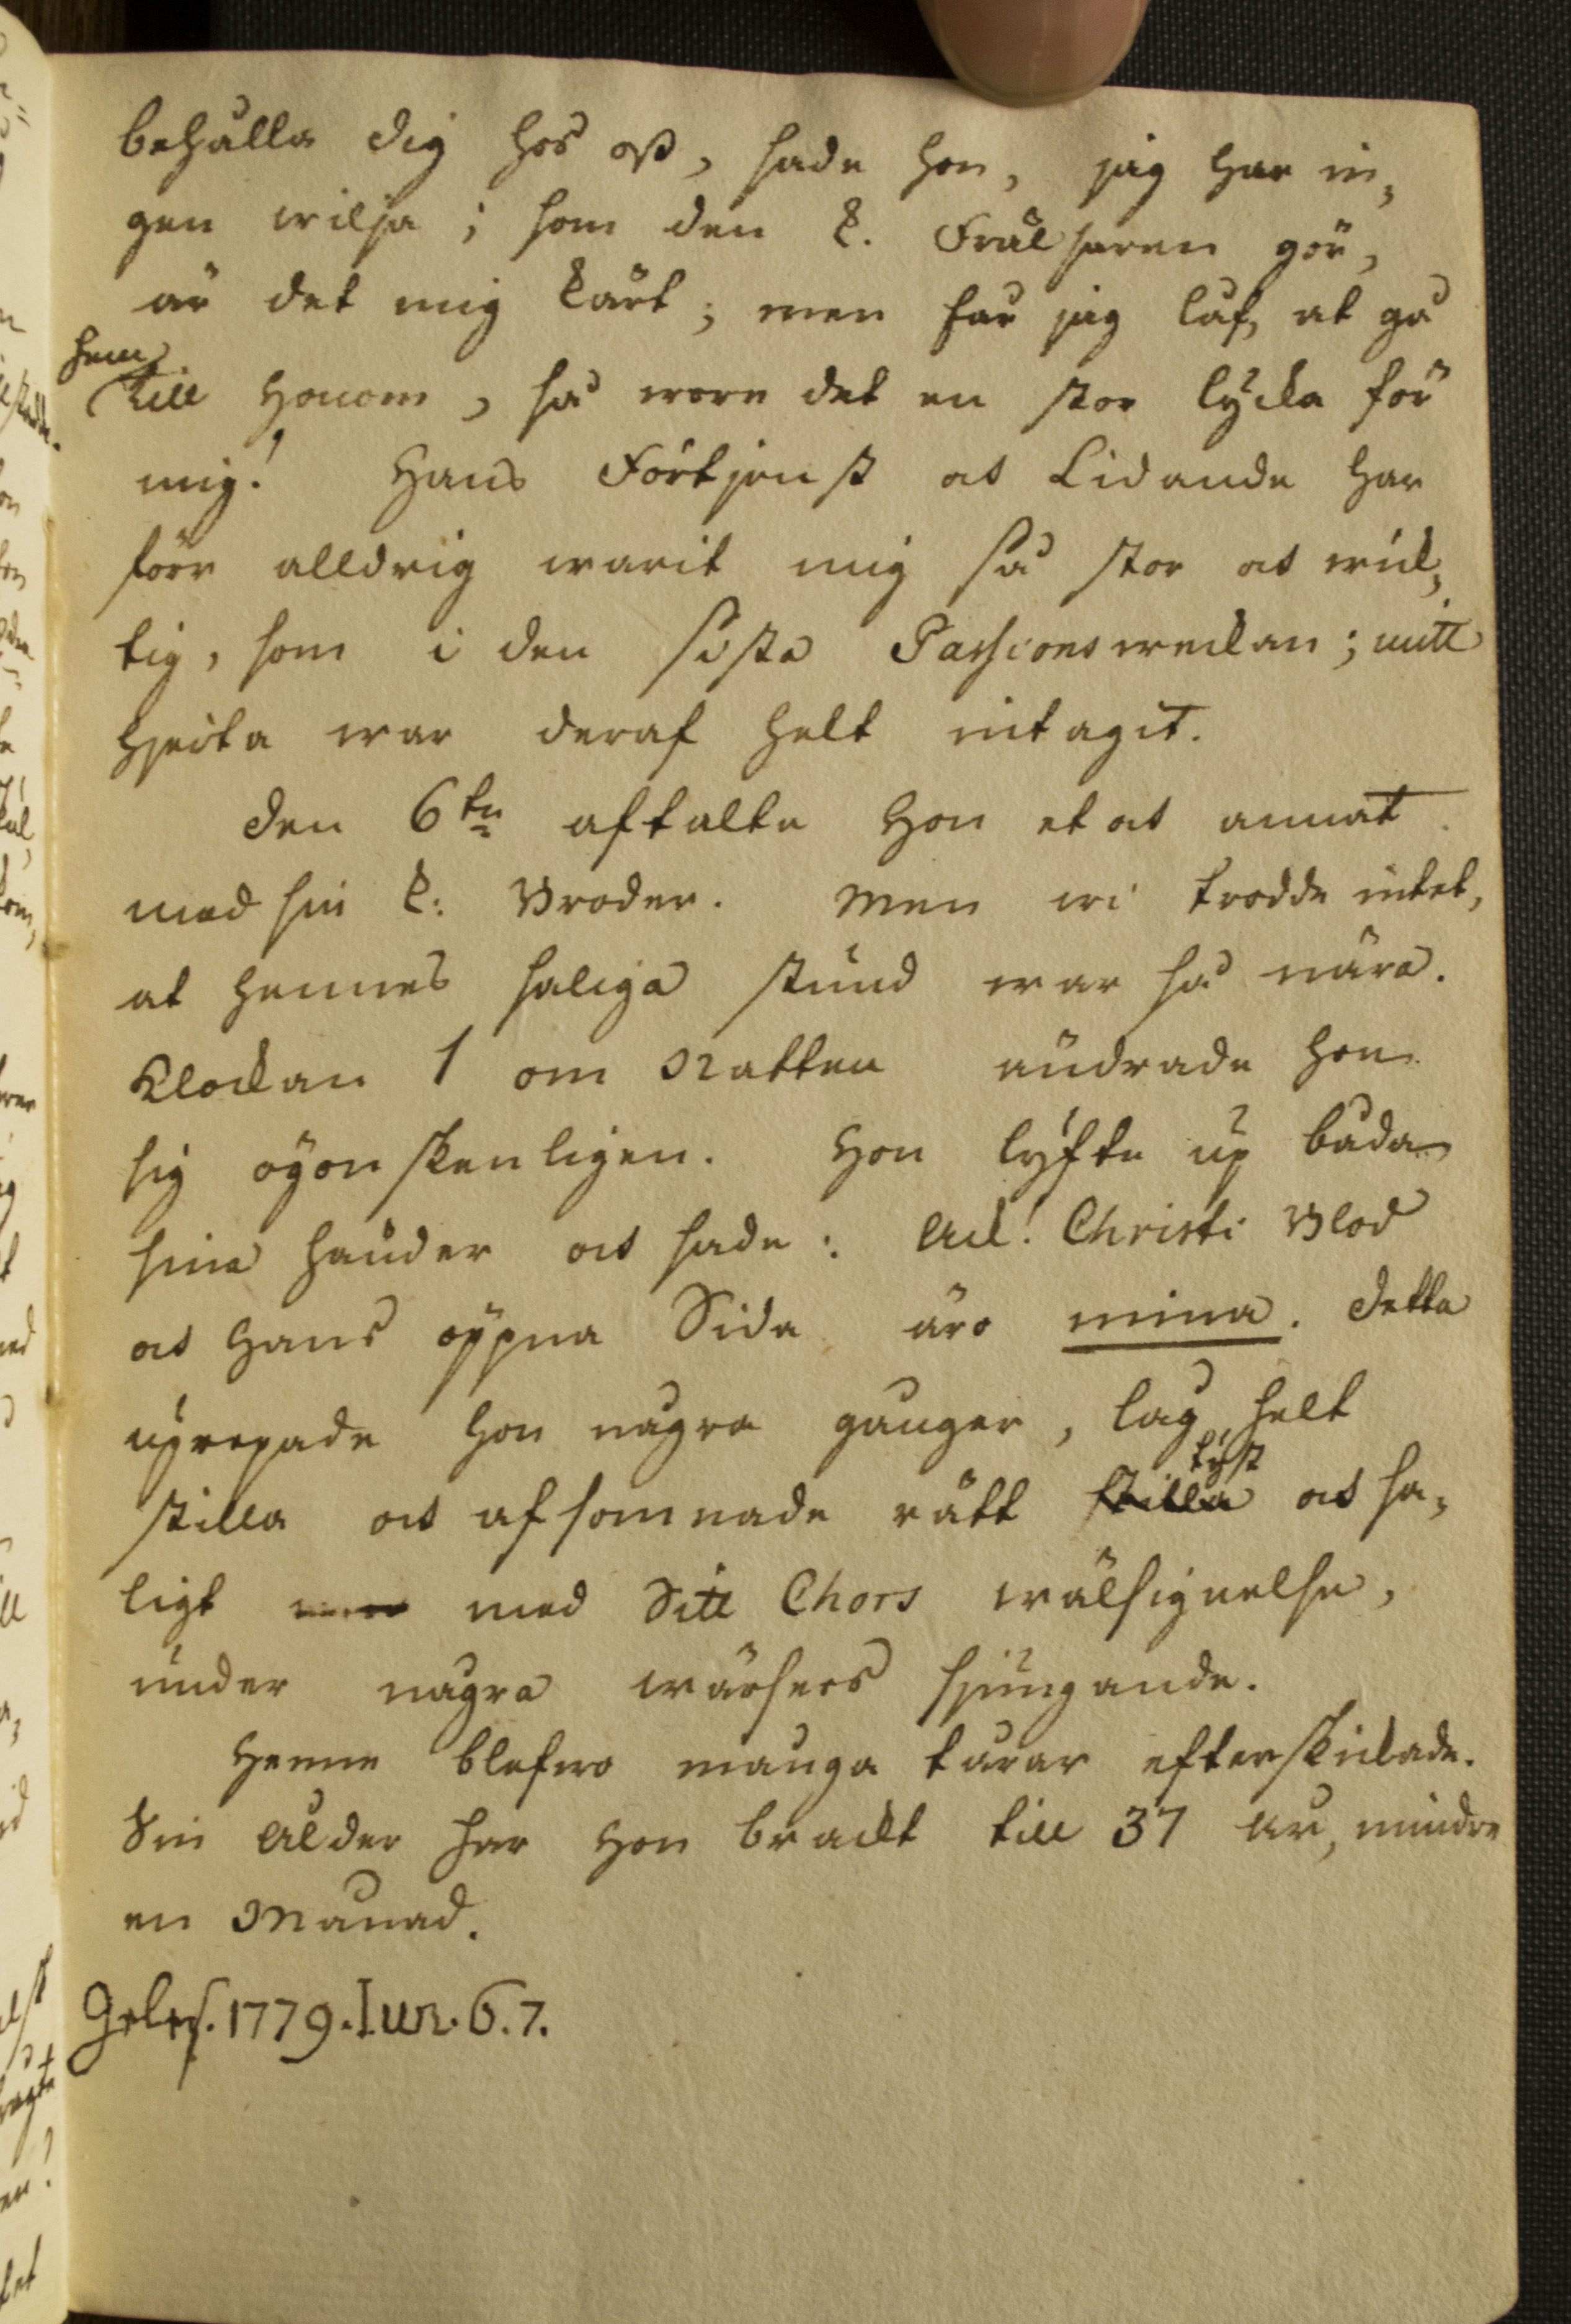 behålla dig hos oß, sade hon, jag har in,
gen wilja; som den k. Frälsaren gör,
är det mig kärt; men får jag låf, at gå
hem
till Honom, så wore det en stor lycka för
mig! Hans Förtjenst och Lidande har
förr alldrig warit mig så stor och wick,
tig, som i den sista Passionsweckan; mitt
Hjerta war deraf helt intagit.
Den 6te aftalte Hon et och annat
med sin k: Broder. Men wi trodde intet,
at hennes saliga stund war så nära.
Klockan 1 om Natten ändrade hon
sig ögonskenligen. Hon lyfte up båda
sina händer och sade: Ack! Christi Blod
och Hans öppna Sida äro mina. Detta
uprepade Hon några gånger, låg helt
tyst
stilla och afsomnade rätt stilla och sa,
ligt med Sitt Chors wälsignelse,
under några wärsers sjungande.
Henne blefwo många tårar efterskickade.
Sin Ålder har Hon brackt till 37 år, mindre
en Månad.
Geles. 1779. Iun. 6. 7.